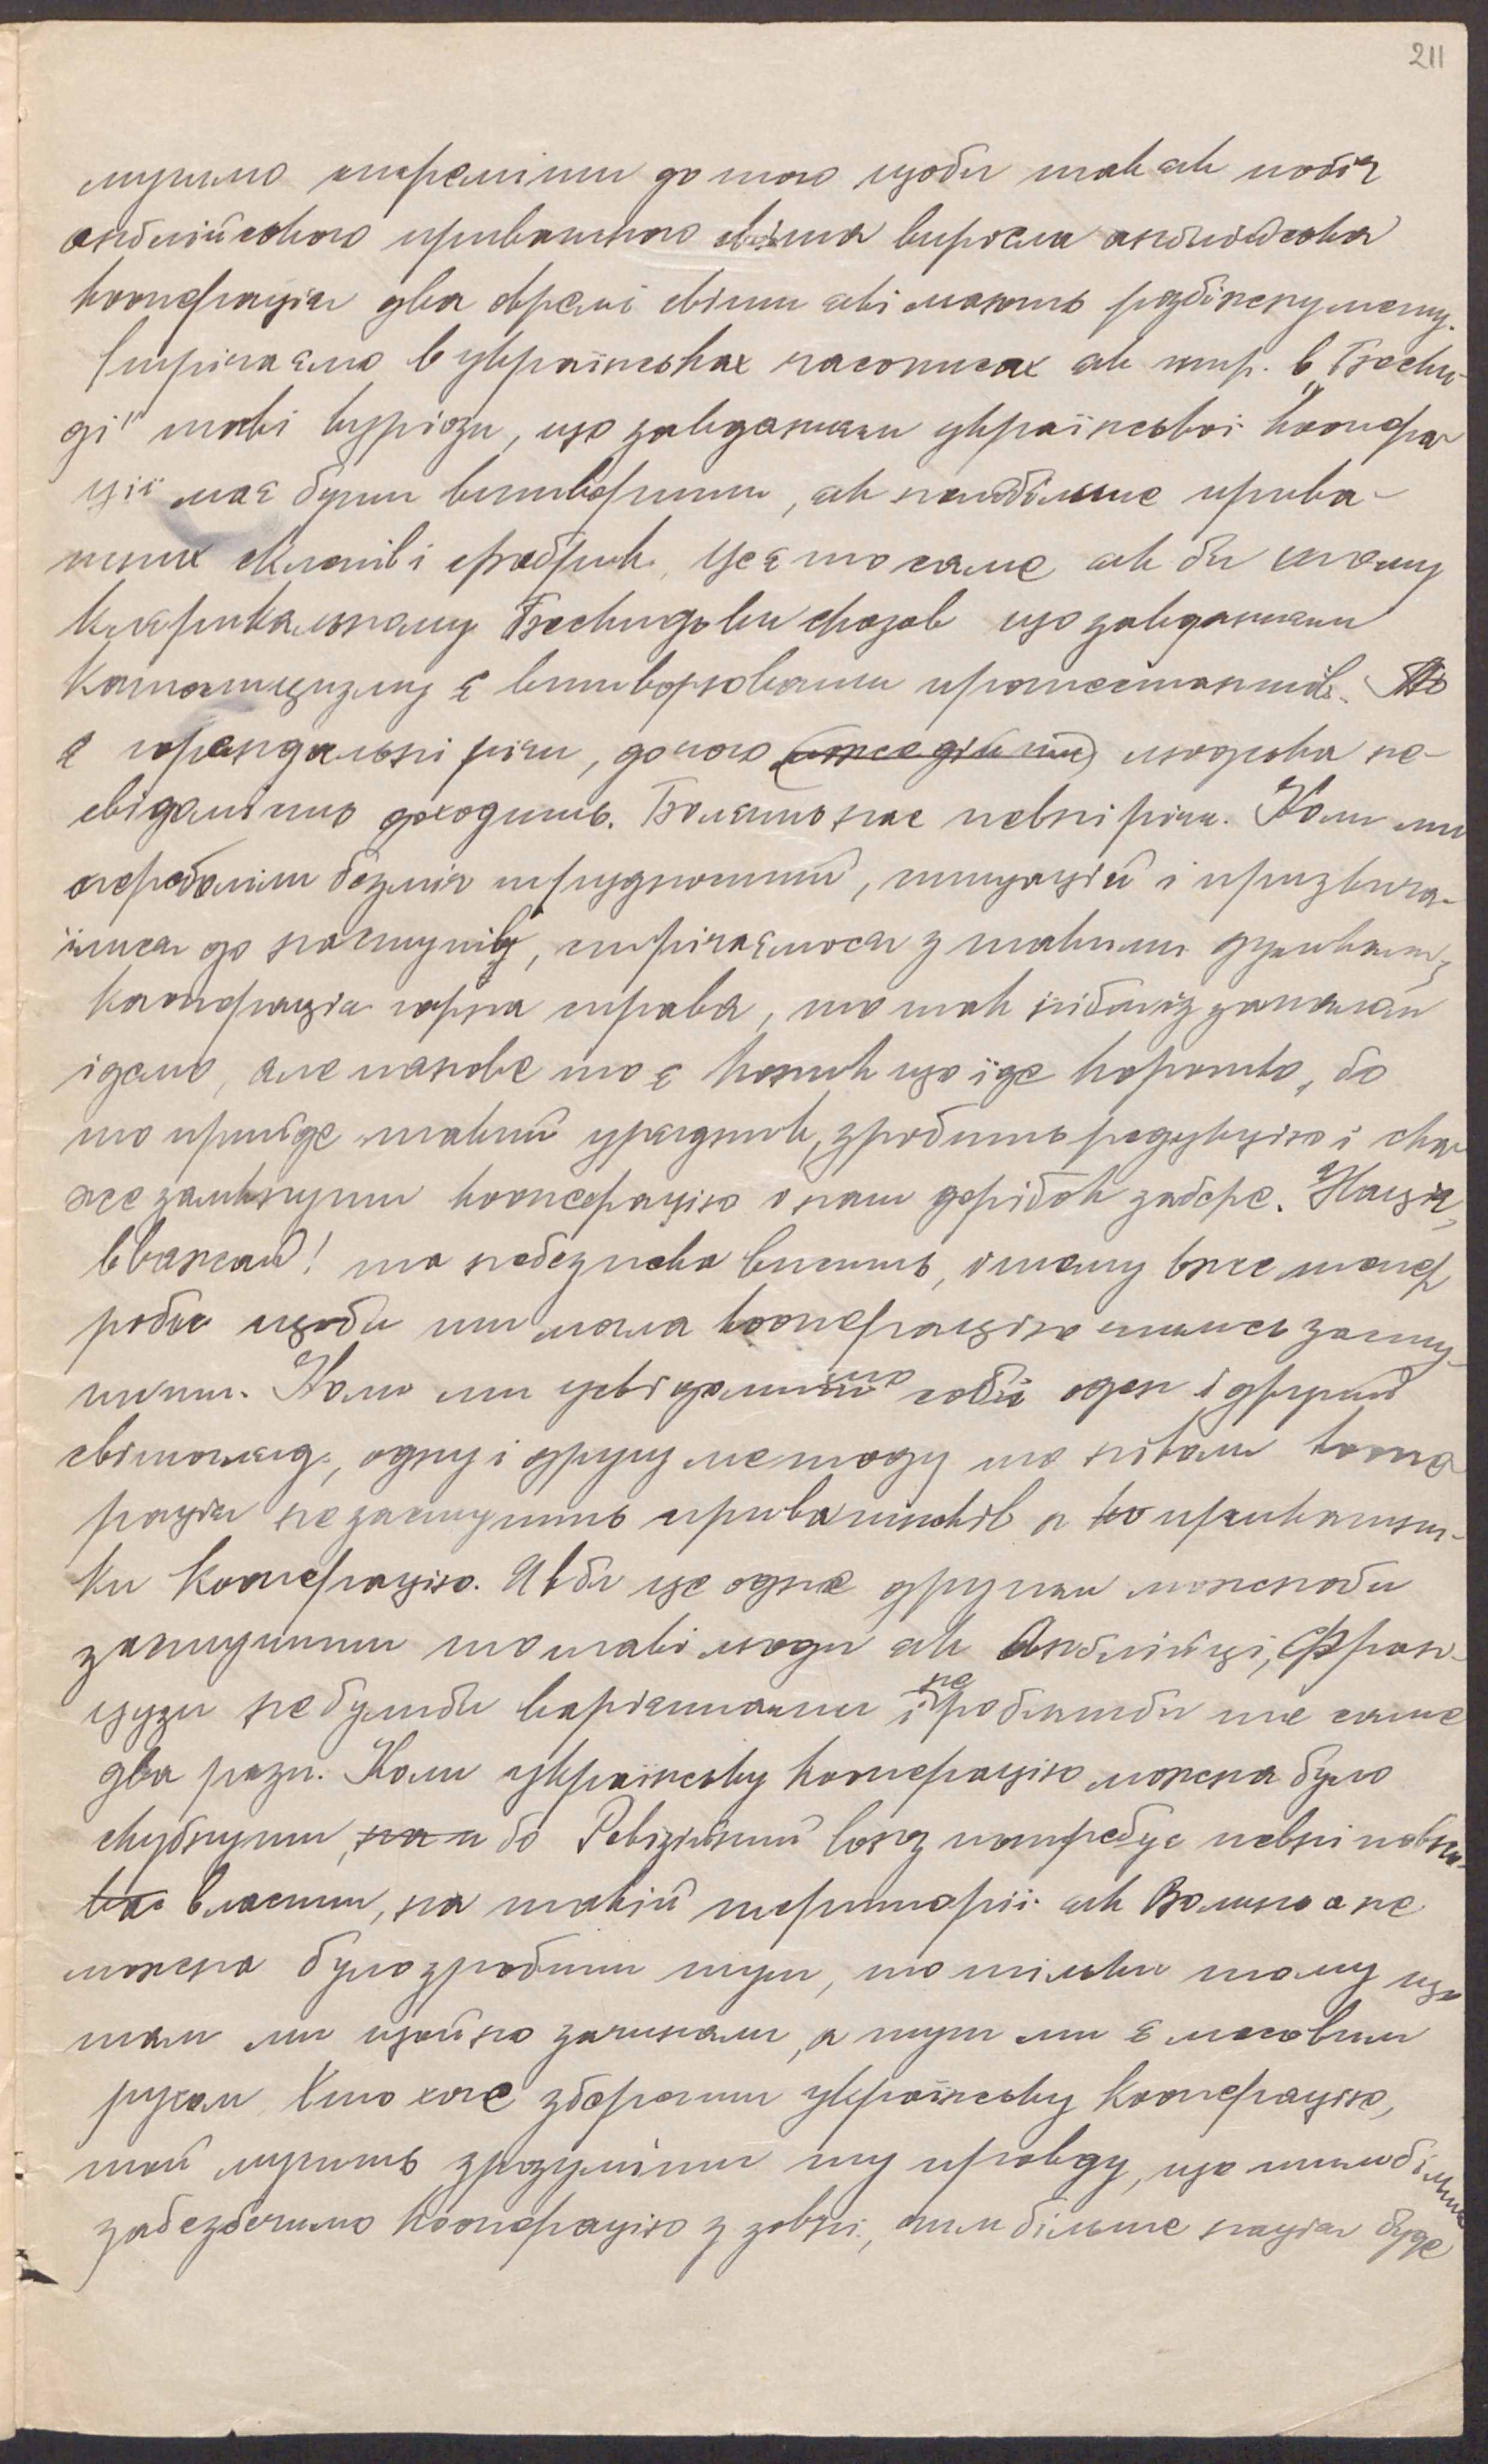 211
мусимо стреміти до того щоби так як побіч
анґлійського приватного світа виросла анґлійська
кооперація два окремі світи які мають розбіжну мету.
Стрічаємо в українських часописах як нпр. в „Бески-
ді" такі курйози, що завданням української коопера
ції має бути витворити, як найбільше прива-
тних склепів і фабрик. Це є то саме як би самому
клєрикальному Бескидови сказав що завданням
Католицизму є витворювання протестантів. То
є скандальні річи, до чого людська не-
свідомість доходить. Болить нас певні річи. Коли ми
перебороли безліч трудностий, ситуацій і призвича-
їлися до наступів, стрічаємося з такими думками
кооперація гарна справа, то так нібито із запалом
ідемо, але панове то є коник що їде коротко, бо
то прийде такий урядник, зробить редукцію і ска
же замкнути кооперацію а наш дорібок забере. Націє,
вважай! та небезпека висить, і тому вже тепер
роби щоби ти мала кооперацію чимсь засту-
пити. Коли ми усвідомимо собі оден і другий
світогляд, одну і другу методу то ніколи коопе
рація не заступить приватників а приватни-
ки Кооперацію. Якби це одне другим можнаби
заступити то такі люди як Анґлійці, Фран-
цузи не булиби варіятами і не робилиби те саме
два рази. Коли українську кооперацію можна було
скубнути, бо Ревізійний Союз потребує певні повно-
власти, на такій території як Волинь а не
можна було зробити тут, то тільки тому що
там ми щойно зачинали, а тут ми є масовим
рухом. Хто хоче зберегти українську Кооперацію,
той мусить зрозуміти ту правду, що чим більше
забезбечимо Кооперацію з зовні, тим більше нація буде